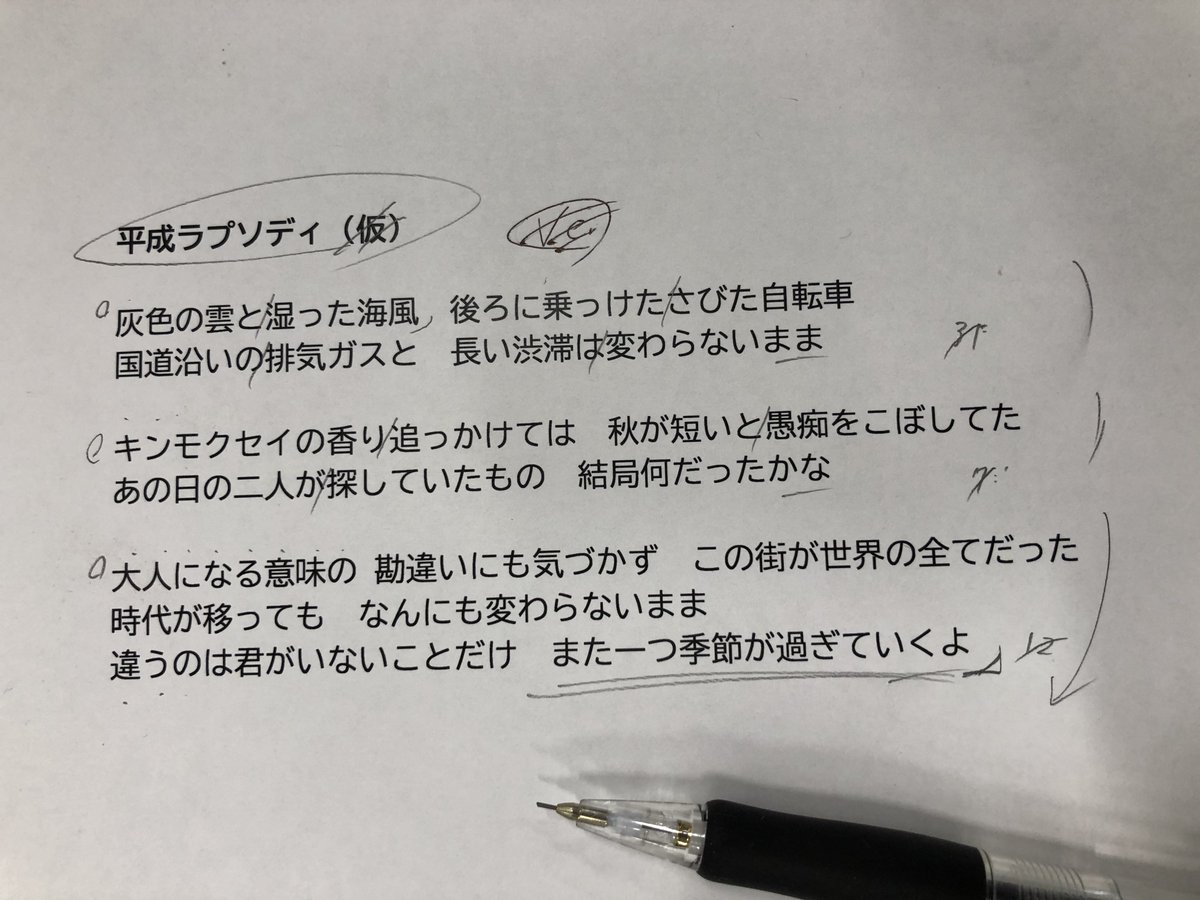 平成ラプソディ（仮）
灰色の雲と湿った海風　後ろに乗っけたさびた自転車
国道沿いの排気ガスと　長い渋滞は変わらないまま
キンモクセイの香り追っかけては　秋が短いと愚痴をこぼしてた
あの日の二人が探していたもの　結局何だったかな
大人になる意味の 勘違いにも気づかず　この街が世界の全てだった
時代が移っても　なんにも変わらないまま
違うのは君がいないことだけ　また一つ季節が過ぎていくよ